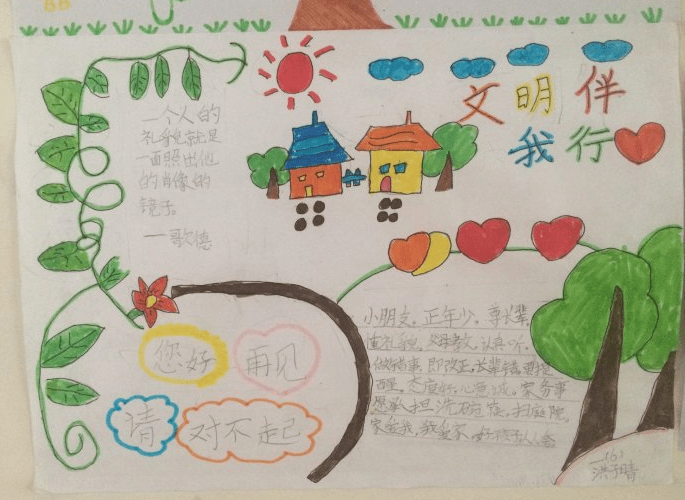 文明伴
我行
一个人的
礼貌就是
一面照出他
的肖像的
镜子。
——歌德
您好
再见
请
对不起
小朋友,正年少,尊长辈,
懂礼貌,父母教,认真听,
做错事,即改正,长辈错
态度好,心愿诚,家务事
愿承担,洗碗筷,扫庭院,
家爱我,我爱家,好孩子人人夸
一(6)
洪子晴